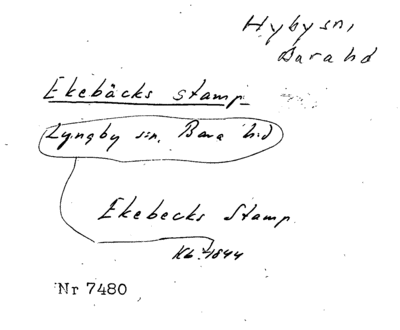 Hyby sn,
Bara hd
Ekebäcks stamp
Lyngby sn. Bara hd
Ekebecks Stamp
Kb. 1844
Nr 7480